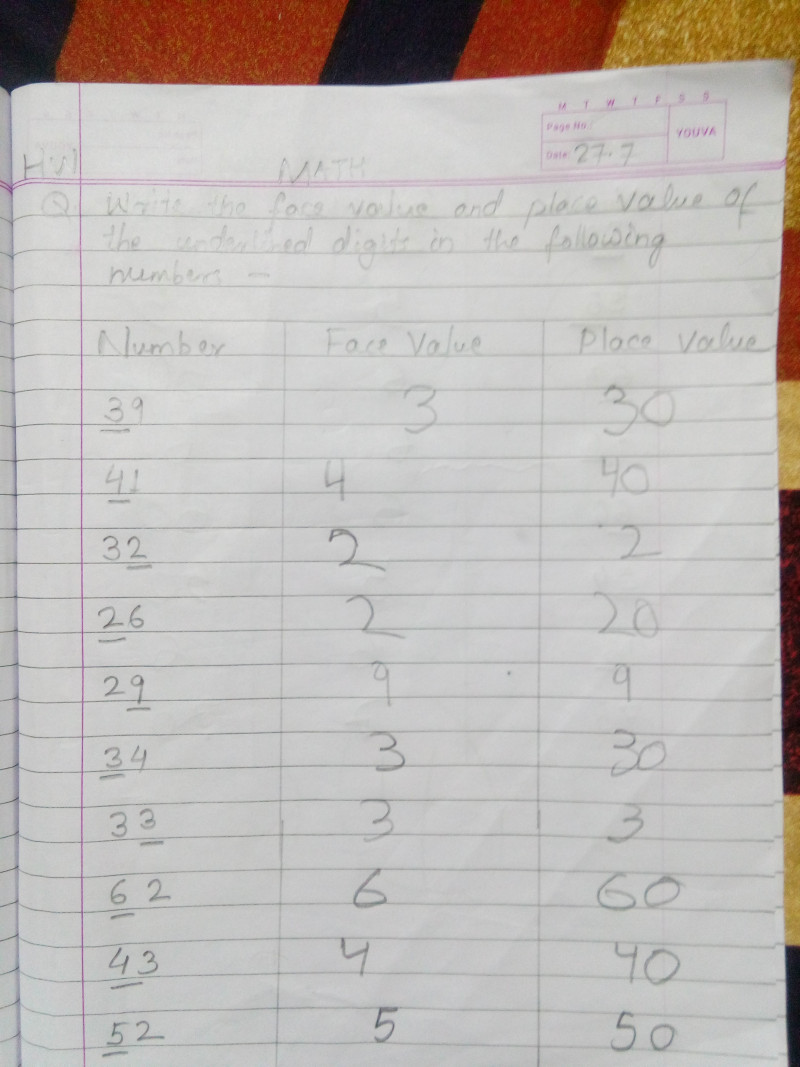 M T W T F S S
Page No.:
YOUVA
Date: 27.7
H.W
MATH
Q. Write the face value and place value of
the underlined digits in the following
numbers –
Number Face Value Place Value
39 3 30
41 4 40
32 2 2
26 2 20
29 9 9
34 3 30
33 3 3
62 6 60
43 4 40
52 5 50